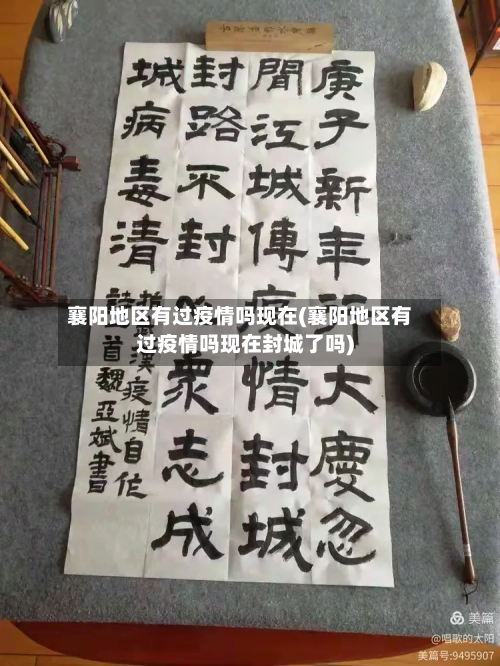 庚子新年行大慶忽
聞江城傳疫情封城
封路不封心眾志成
城病毒清
抗武漢疫情自作
詩一首魏亞斌書
襄阳地区有过疫情吗现在(襄阳地区有
过疫情吗现在封城了吗)
美篇
@唱歌的太阳
美篇号:9495907